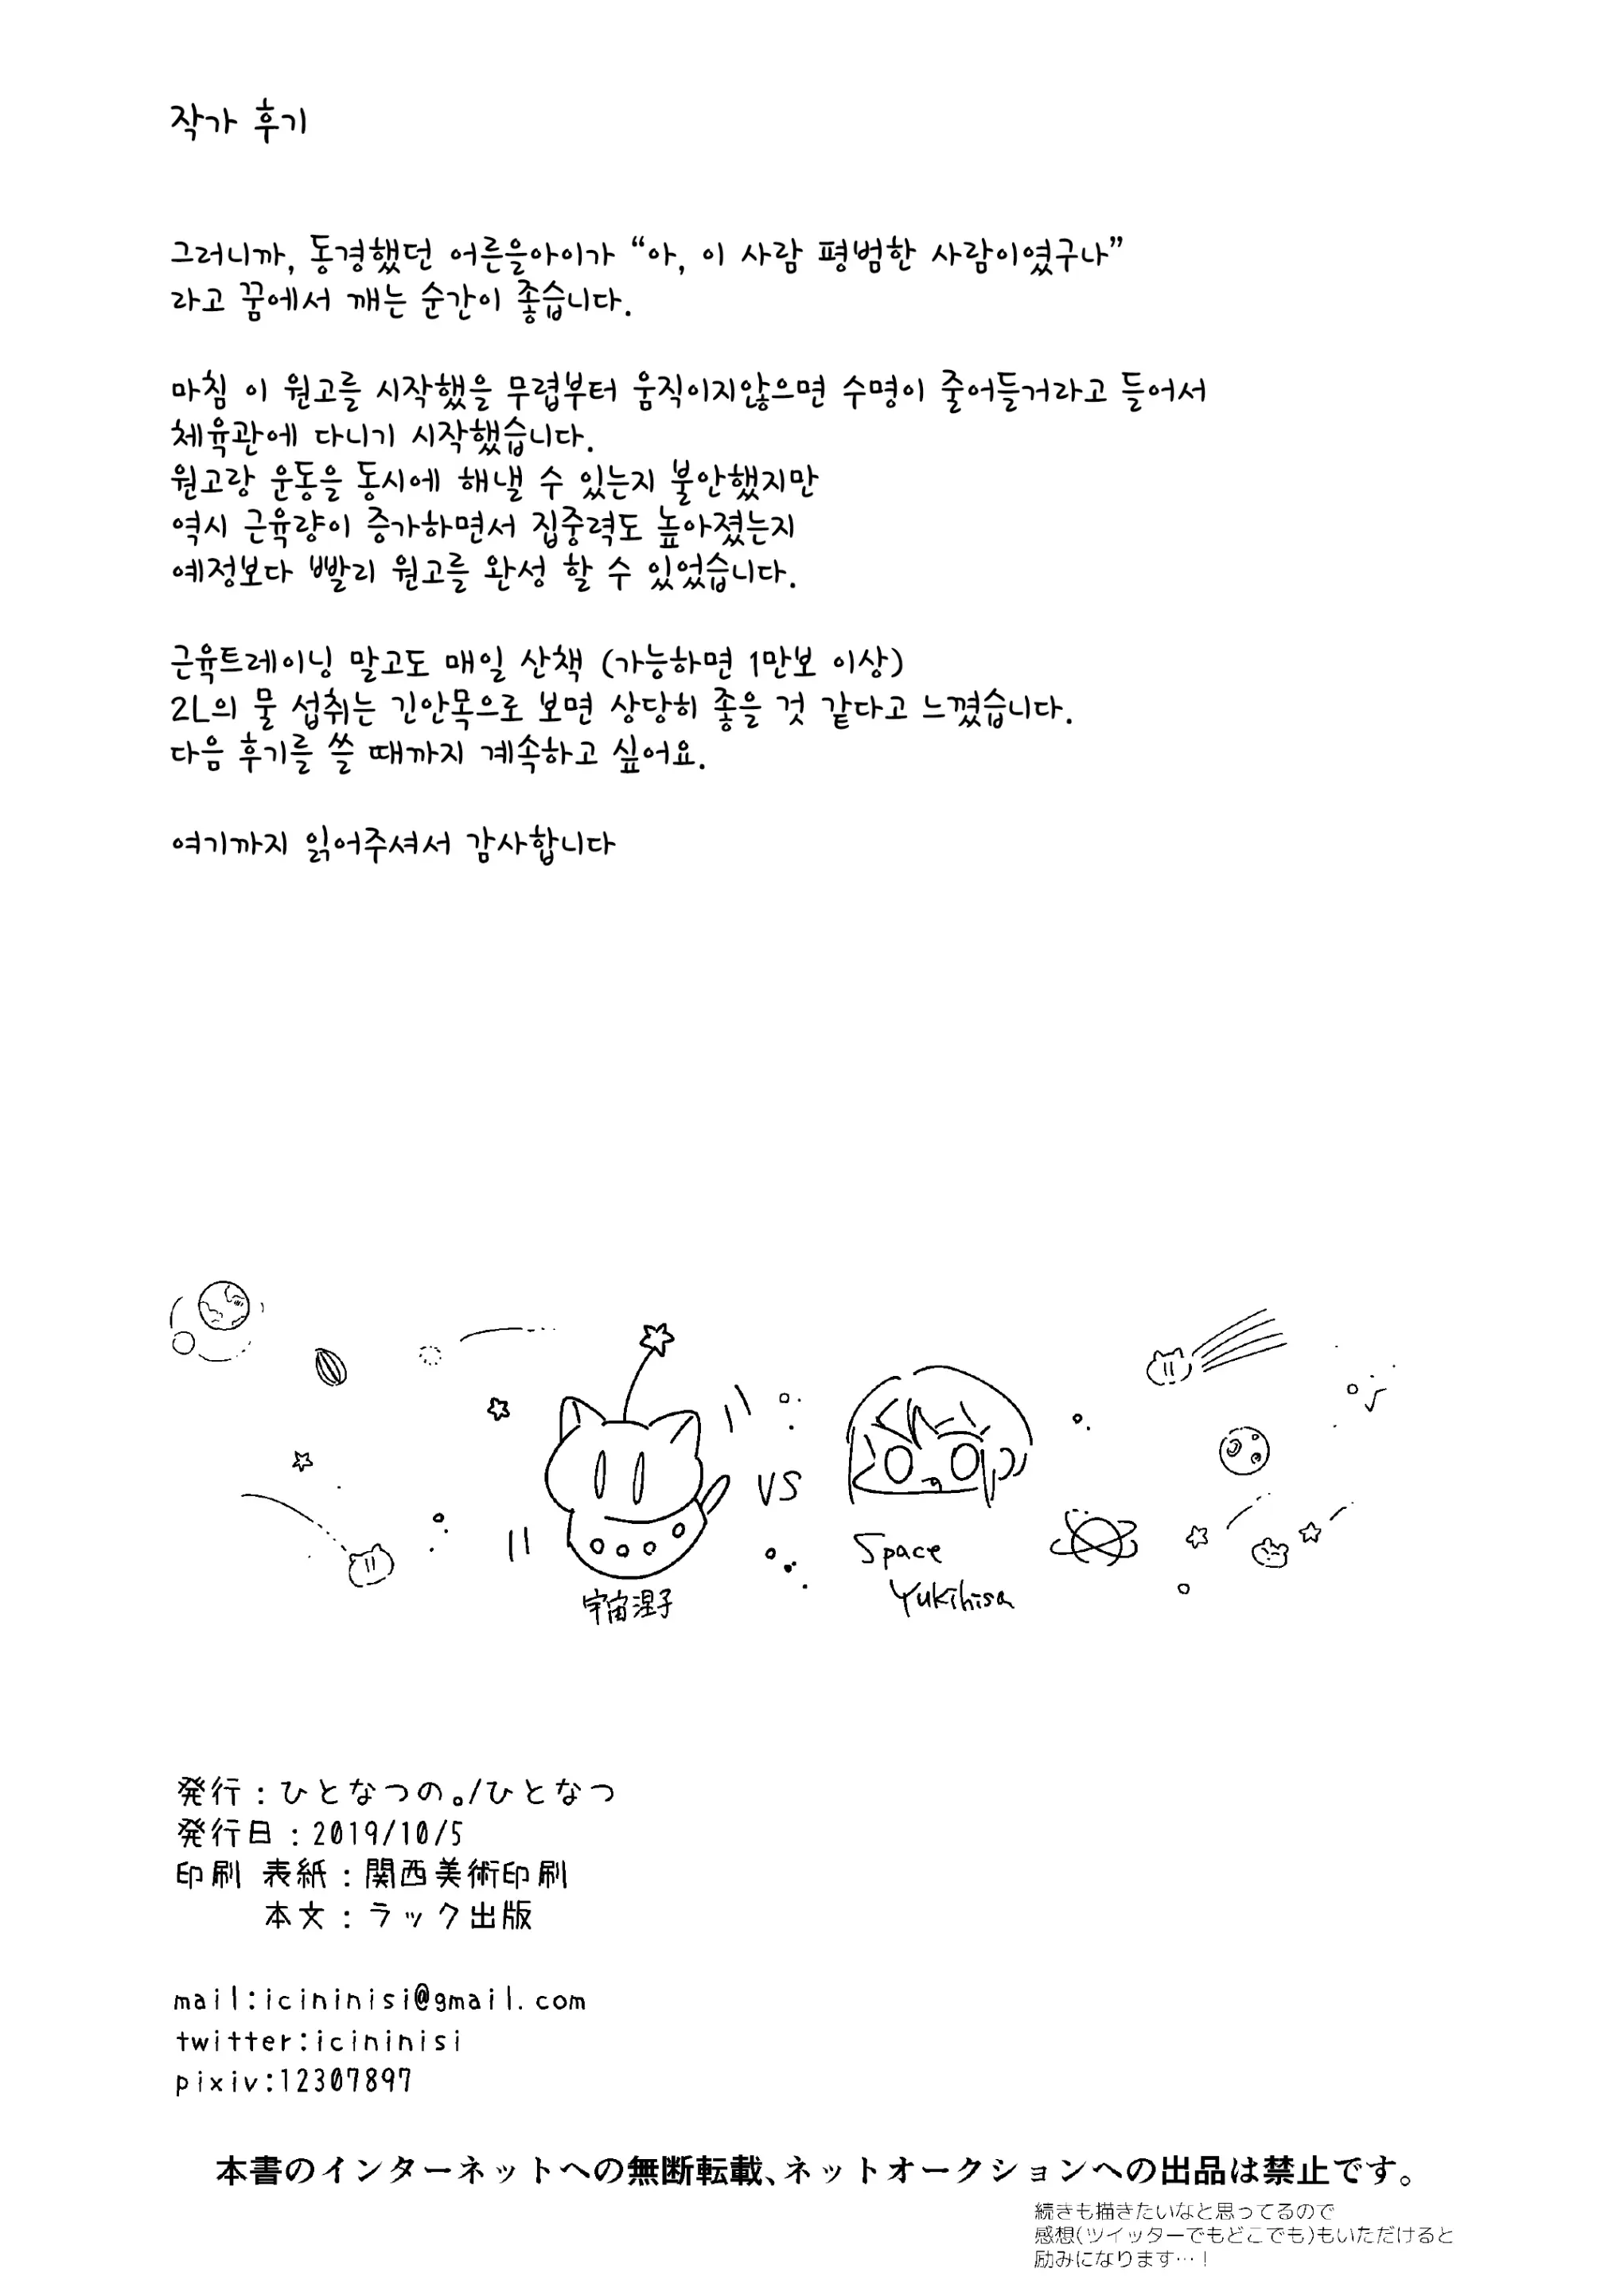 작가 후기
그러니까, 동경했던 어른을아이가 “아, 이 사람 평범한 사람이였구나”
라고 꿈에서 깨는 순간이 좋습니다.
마침 이 원고를 시작했을 무렵부터 움직이지않으면 수명이 줄어들거라고 들어서
체육관에 다니기 시작했습니다.
원고랑 운동을 동시에 해낼 수 있는지 불안했지만
역시 근육량이 증가하면서 집중력도 높아졌는지
예정보다 빨리 원고를 완성 할 수 있었습니다.
근육트레이닝 말고도 매일 산책 (가능하면 1만보 이상)
2L의 물 섭취는 긴안목으로 보면 상당히 좋을 것 같다고 느꼈습니다.
다음 후기를 쓸 때까지 계속하고 싶어요.
여기까지 읽어주셔서 감사합니다
VS
宇宙涅子
Space
Yukihisa
発行:ひとなつの。/ひとなつ
発行日:2019/10/5
印刷 表紙:関西美術印刷
本文:ラック出版
mail:icininisi@gmail.com
twitter:icininisi
pixiv:12307897
本書のインターネットへの無断転載、ネットオークションへの出品は禁止です。
続きも描きたいなと思ってるので
感想(ツイッターでもどこでも)もいただけると
励みになります…!